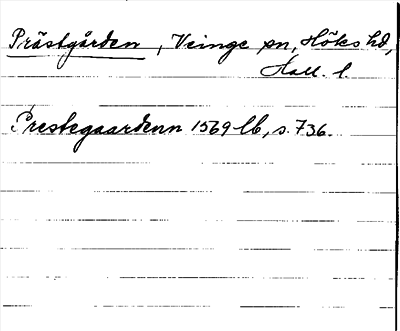 Prästgården, Veinge sn, Höks hd,
Hall. l.
Prestegaardenn 1569 lb, s. 736.